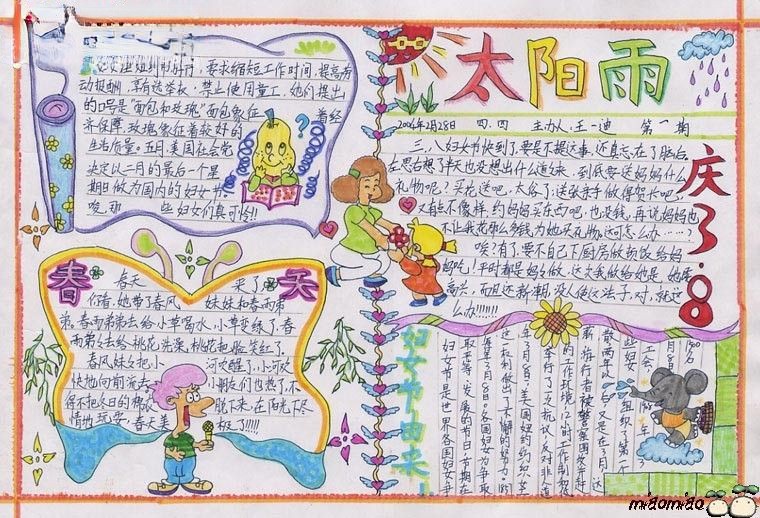 要求缩短工作时间,提高劳
动报酬,享有选举权,禁止使用童工。她们提出
的口号是"面包和玫瑰"面包象征着经
济保障,玫瑰象征着较好的
生活质量。五月,美国社会党
决定以二月的最后一个星
期日做为国内的妇女节。
唉,那些妇女们真可怜!!
太阳雨
2006年2月28日 四.四 主办人:王一迪 第一期
庆3·8
三、八妇女节快到了,要是不提这事,还真忘在了脑后。
左思右想了半天也没想出什么道道来,到底要送妈妈什么
礼物呢?买花送吧,太俗了;送张亲手做得贺卡吧,
又有点不像样,约妈妈买东西吧,也没钱,再说妈妈也
不让我花那么多钱,为她买礼物,这可怎么办……?
唉!有了,要不自己下厨房做顿饭给妈
妈吃!平时都是妈妈做,这次我做给她,她准
高兴,而且还新潮,没人使这法子,对,就这
么办!!!!!!!
春天
春天来了,
你看,她带了春风妹妹和春雨弟
弟,春雨弟弟去给小草喝水,小草变绿了,春
雨弟弟去给桃花洗澡,桃花的脸笑红了,
春风妹妹把小河吹醒了,小河欢
快地向前流去,小朋友们也热了,不
得不把冬日的棉袄脱下来,在阳光下尽
情地玩耍,春天美极了!!!!!
妇女节由来!
妇女节是世界各国妇女争
取平等、发展的节日,节期在
每年3月8日。各国妇女为争取
这一权利做了不懈的努力。
年3月8日,美国纽约的纺
举行了
的工作环境,12时工作制和
miaomiao